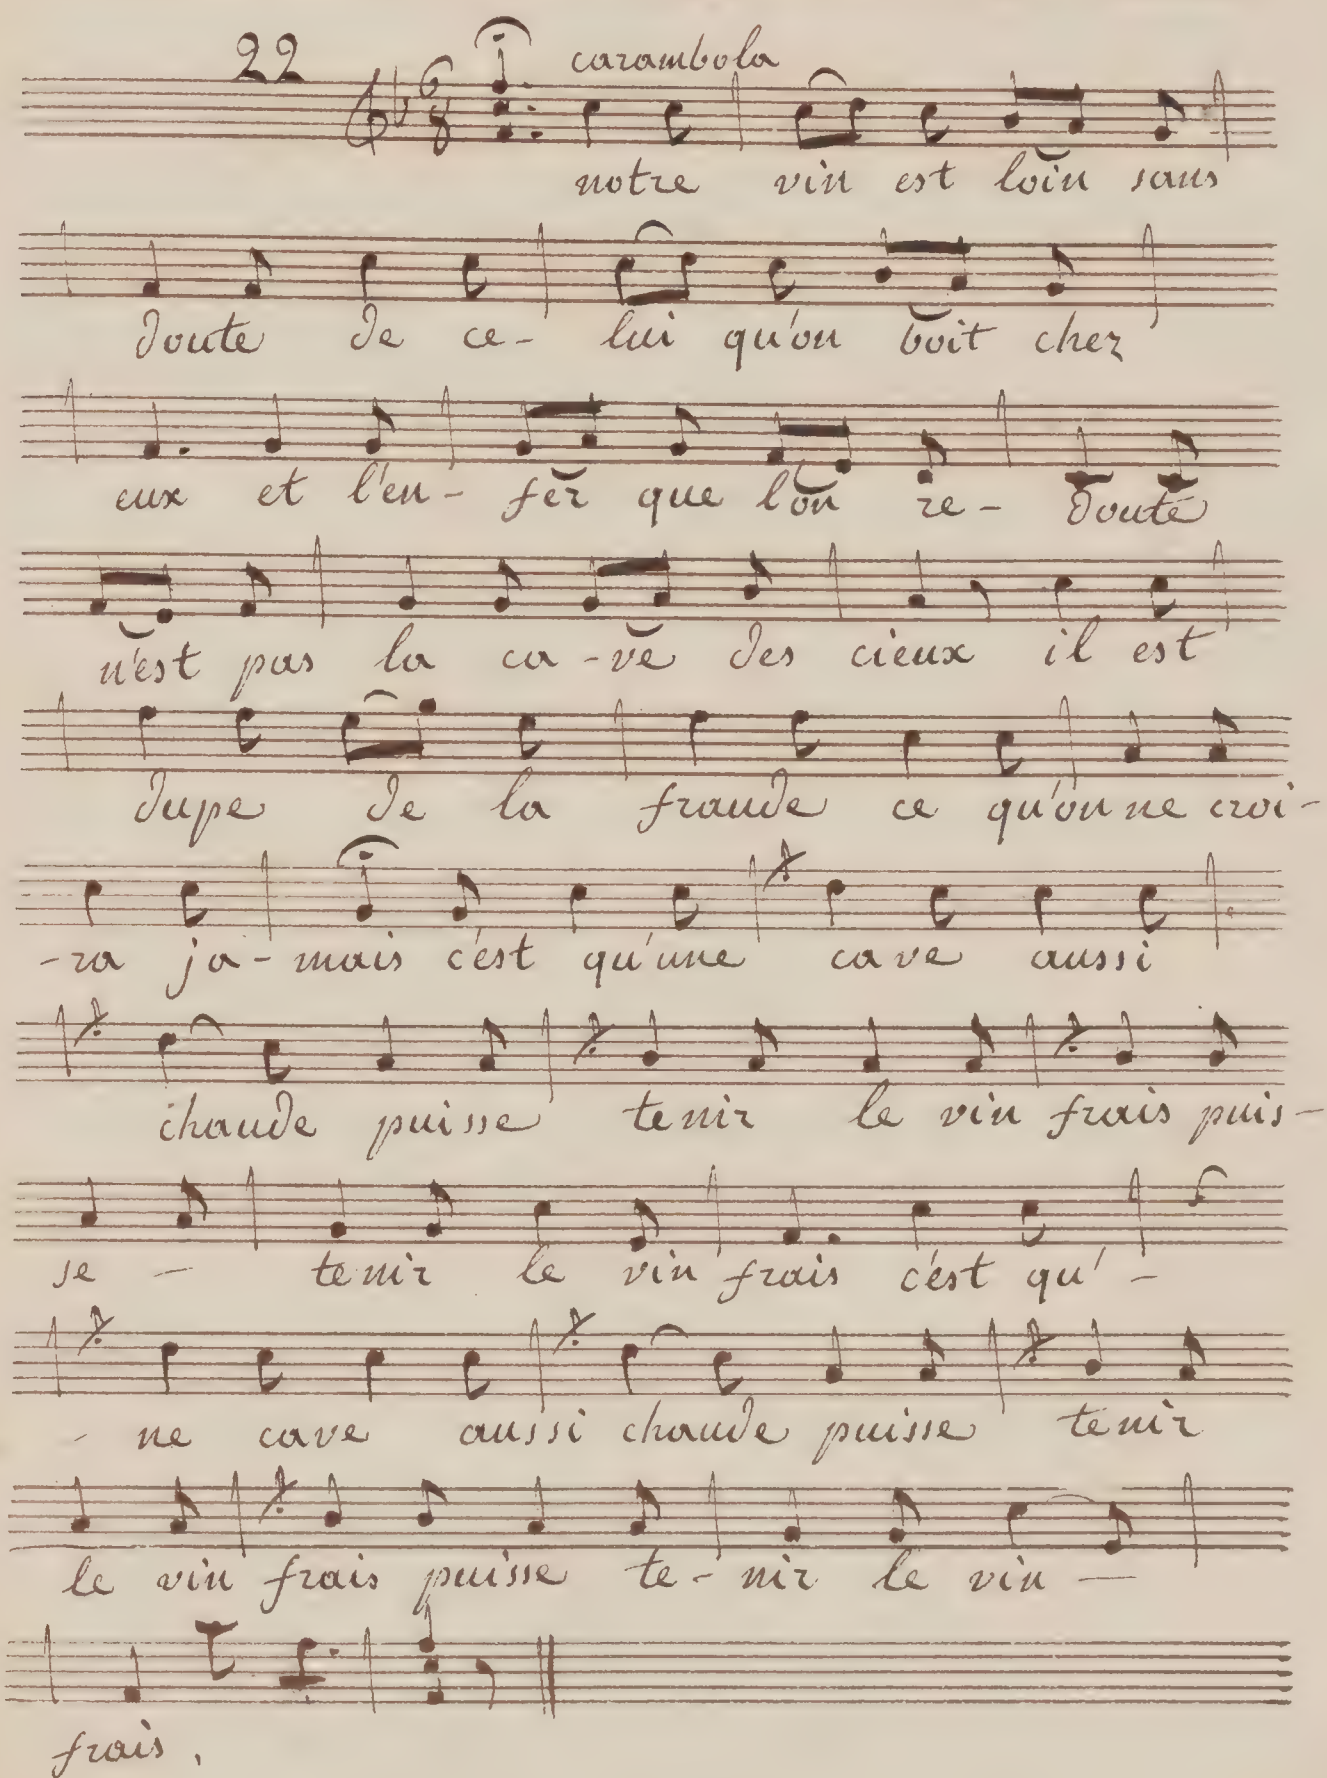 22 carambola
notre vin est loin sans
doute de ce- lui qu'on boit chez
eux et l'en- fer que l'on re- doute
n'est pas la ca-ve des cieux il est
dupe de la fraude ce qu'on ne croi-
-ra ja-mais c'est qu'une cave aussi
chaude puisse tenir le vin frais puis-
se - tenir le vin frais c'est qu'-
- ne cave aussi chaude puisse tenir
le vin frais puisse te-nir le vin —
frais.